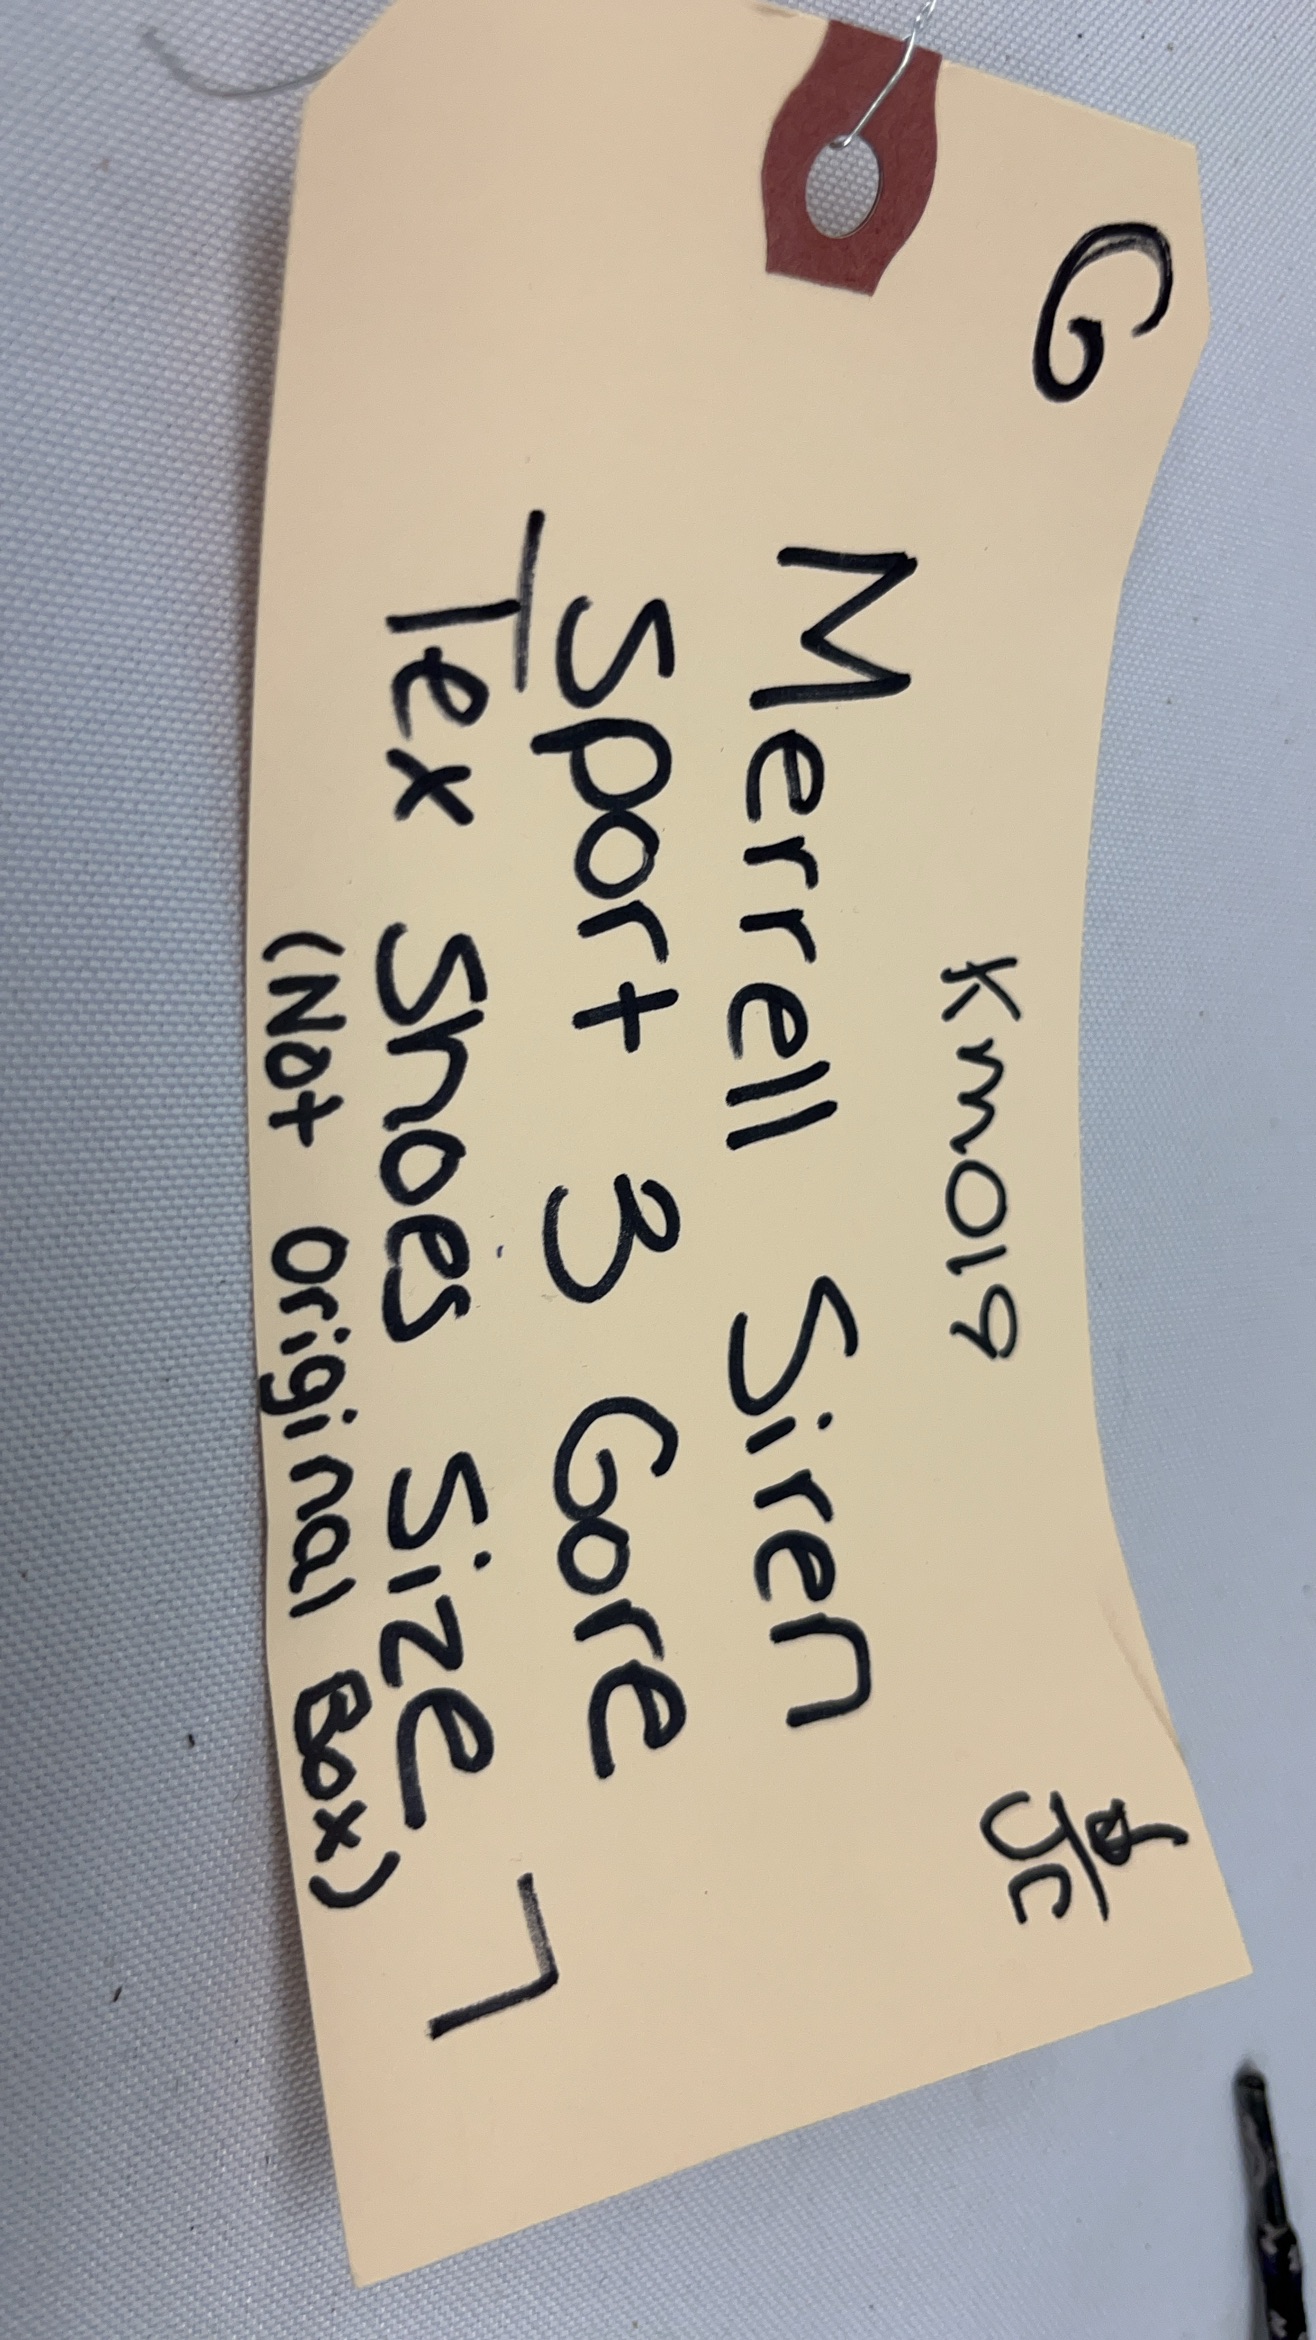 G
KM019
JC
Merrell Siren
Sport 3 Gore
Tex Shoes Size 7
(Not Original Box)